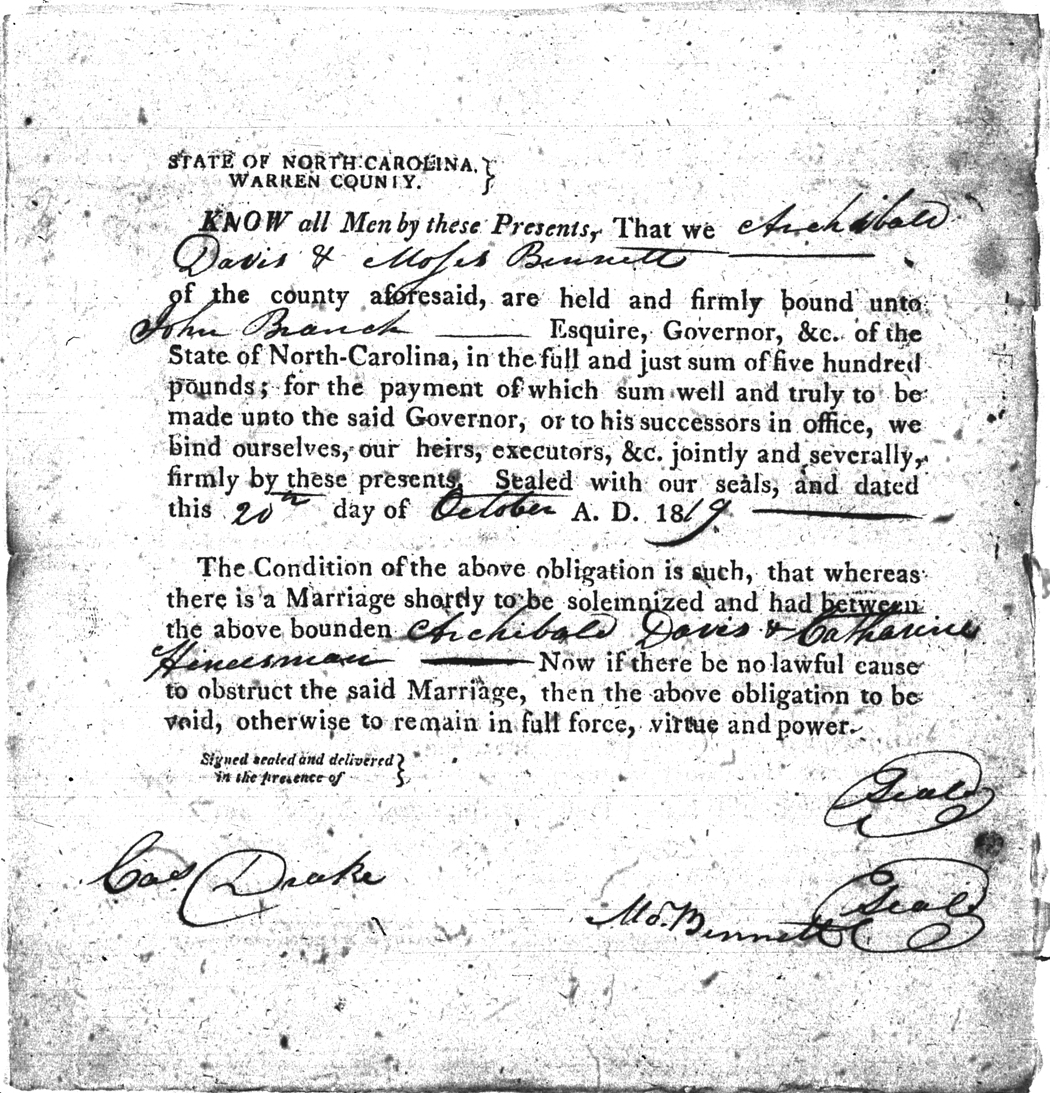 STATE OF NORTH-CAROLINA, }
WARREN COUNTY. }
KNOW all Men by these Presents, That we Archibald
Davis & Moses Bennett
of the county aforesaid, are held and firmly bound unto
John Branch Esquire, Governor, &c. of the
State of North-Carolina, in the full and just sum of five hundred
pounds; for the payment of which sum well and truly to be
made unto the said Governor, or to his successors in office, we
bind ourselves, our heirs, executors, &c. jointly and severally,
firmly by these presents. Sealed with our seals, and dated
this 20th day of October A. D. 1819.
The Condition of the above obligation is such, that whereas
there is a Marriage shortly to be solemnized and had between
the above bounden Archibald Davis & Catharine
Now if there be no lawful cause
to obstruct the said Marriage, then the above obligation to be
void, otherwise to remain in full force, virtue and power.
Signed sealed and delivered }
in the presence of }
Seal
Cas. Drake
Mo. Bennett Seal